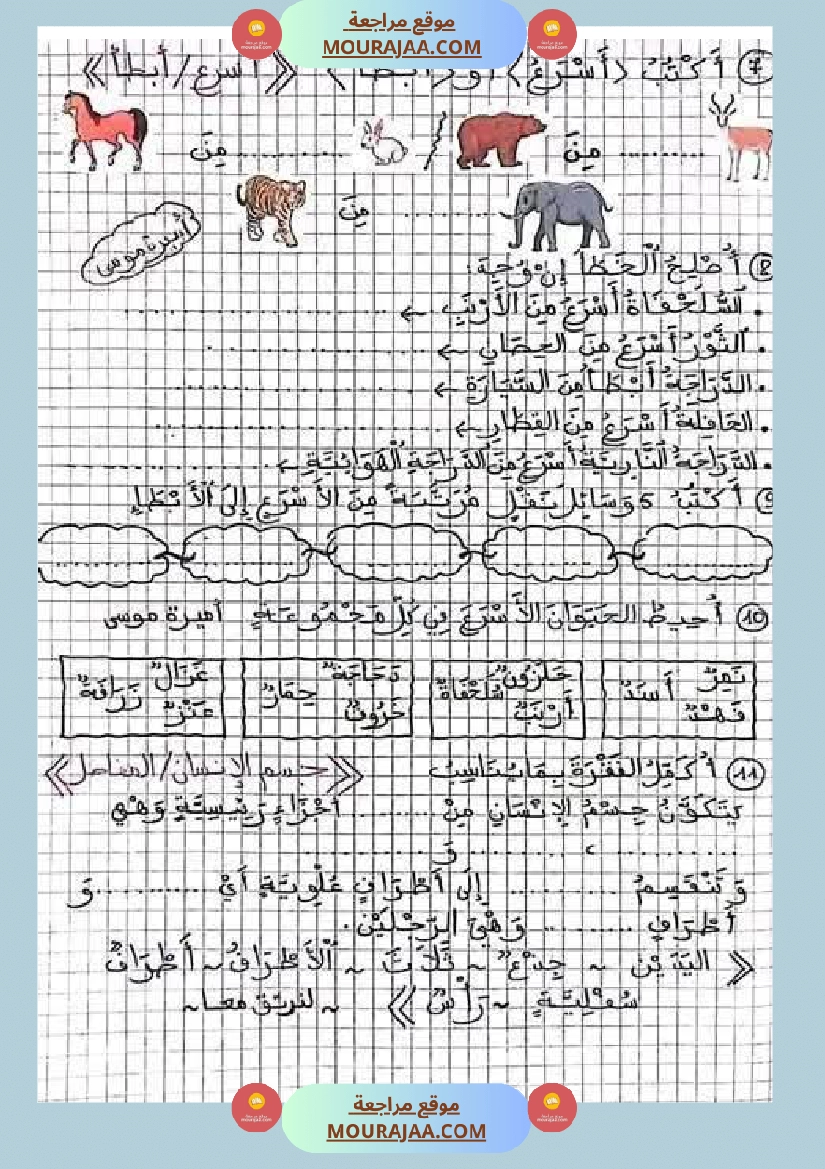 موقع مراجعة
MOURAJAA.COM
7 أَكْتُبُ ⟨أَسْرَعُ⟩ أو ⟨أبطأ⟩ ⟪أسرع/أبطأ⟫
.......... مِنَ / .......... مِنَ
.......... مِنَ
أميرة موسى
8 أُصْلِحُ ٱلْخَطَأَ إِنْ وُجِدَ:
. ٱلسُّلَحْفَاةُ أَسْرَعُ مِنَ الأَرْنَبِ ← ..........
. ٱلثَّوْرُ أَسْرَعُ مِنَ الحِصَانِ ← ..........
. الدَّرَاجَةُ أَبْطَأُ مِنَ السَّيَّارَةِ ← ..........
. الحَافِلَةُ أَسْرَعُ مِنَ القِطَارِ ← ..........
. الدَّرَاجَةُ ٱلنَّارِيَّةُ أَسْرَعُ مِنَ الدَّرَاجَةِ ٱلْهَوَائِيَّةِ ← ..........
9 أَكْتُبُ 5 وَسَائِلِ نَقْلٍ مُرَتَّبَةً مِنَ الأَسْرَعِ إِلَى ٱلْأَبْطَإِ
10 أُحِيطُ الحَيَوَانَ الأَسْرَعَ فِي كُلِّ مَجْمُوعَةٍ أميرة موسى
نَمِرٌ أَسَدٌ فَهْدٌ
حَلَزُونٌ سُلَحْفَاةٌ أَرْنَبٌ
دَجَاجَةٌ حِمَارٌ خَرُوفٌ
غَزَالٌ زَرَافَةٌ عَنْزٌ
11 أُكَمِّلُ الفَقْرَةَ بِمَا يُنَاسِبُ ⟪جسم الإنسان/المفاصل⟫
يَتَكَوَّنُ جِسْمُ الإِنْسَانِ مِنْ .......... أَجْزَاءٍ رَئِيسِيَّةٍ وَهْيَ
.......... ، .......... وَ ..........
وَتَنْقَسِمُ .......... إِلَى أَطْرَافٍ عُلْوِيَّةٍ أَيْ .......... وَ
أَطْرَافٍ .......... وَهْيَ الرِّجْلَيْنِ.
⟪ اليَدَيْنِ ~ جِذْعٌ ~ ثَلَاثَ ~ ٱلْأَطْرَافُ ~ أَطْرَافٌ
سُفْلِيَّةٍ ~ رَأْسٌ ⟫ ~ لنرتق معا ~
موقع مراجعة
MOURAJAA.COM